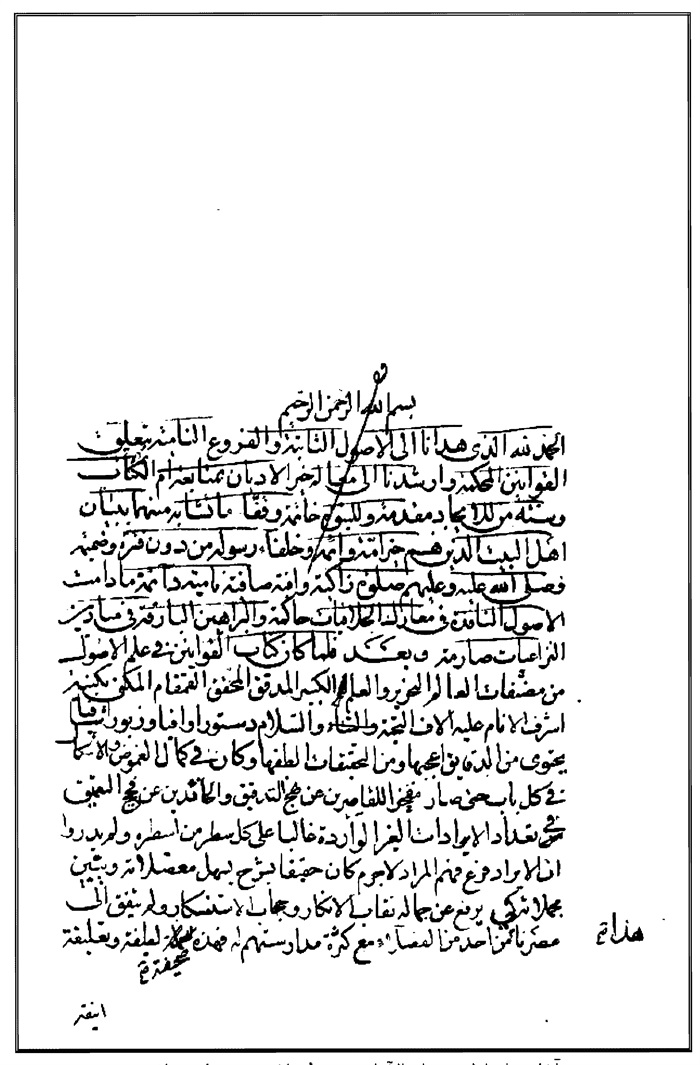 بسم الله الرحمن الرحيم
الحمد لله الذي هدانا الى الاصول الثابتة والفروع النامية بتعليق
القوانين المحكمة وارشدنا الى معالم خير الاديان بمتابعة ام الكتاب
وسنة من للايجاد مقدمة وللنبوة خاتمة وفقا ما تشابه منهما ببيان
اهل البيت الذين هم خير امة وائمة وخلفاء رسوله من دون فترة وضميمة
فصلى الله عليه وعليهم صلوة زاكية وافية صافية نامية دائمة ما دامت
الاصول النافذة في معارك الخلافيات حاكمة والبراهين البارقة في مبادئ
النزاعيات صارمة وبعد فلما كان كتاب القوانين في علم الاصول
من مصنفات العالم النحرير والعالم الكبير المدقق المحقق القمقام المكنى بكنية
اشرف الانام عليه الاف التحية والثناء والسلام دستورا وافيا وزبورا شافيا
يحتوي من الدقايق اعجبها ومن التحقيقات الطفها وكان في كمال الغموض والاشكال
في كل باب حتى صار للقاصرين عن نهج التدقيق والحائدين عن فج التعميق
في تعداد الايرادات الغير الواردة غالبا على كل سطر من اسطره ولم يدروا
ان الايراد فرع فهم المراد لاجرم كان حقيقا بشرح يسهل معضلاته ويبين
مجملاته كي يرفع عن جماله نقاب الانكار وحجاب الاستنكار ولم يتفق الى
عصرنا من احد من الفضلاء مع كثرة مدارستهم له فهذه لطيفة وتعليقة
هذا
صحيفة
انيقة